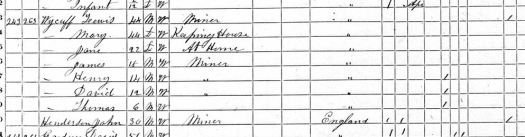 Infant 1/12 F W " 1 Apr
243 263 Wycuff Lewis 44 M W Miner "
— Mary 44 F W Keeping House "
— Jane 22 F W At Home "
— James 18 M W Miner "
— Henry 14 M W " " 1
— David 12 M W " " 1
— Thomas 6 M W " 1
Henderson John 30 M W Miner England 1 1 1